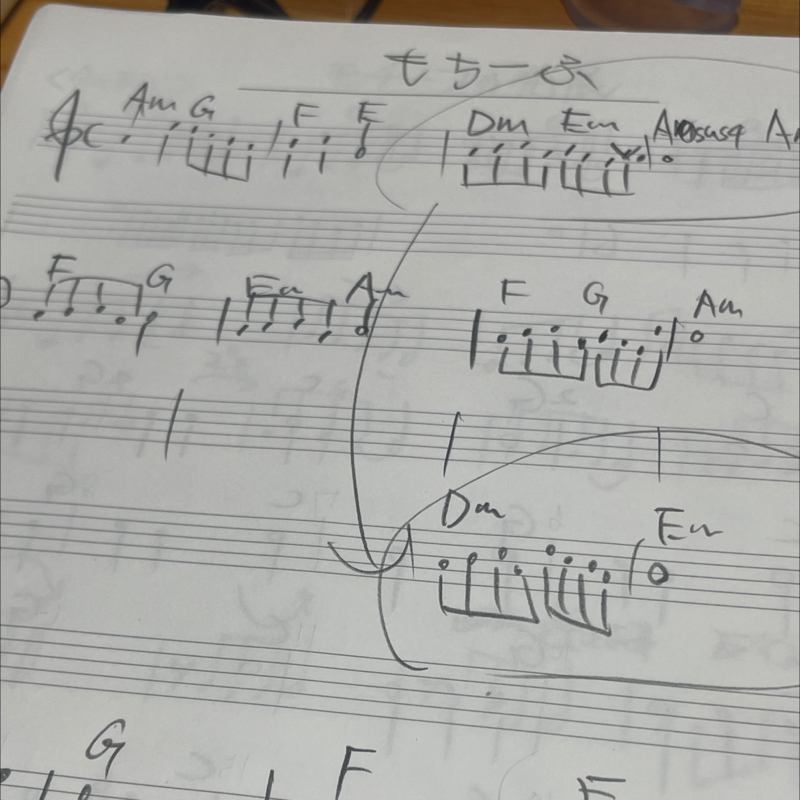 もちーふ
Am G F E Dm Em Asus4 A
F G Em Am F G Am
Dm Em
G F E